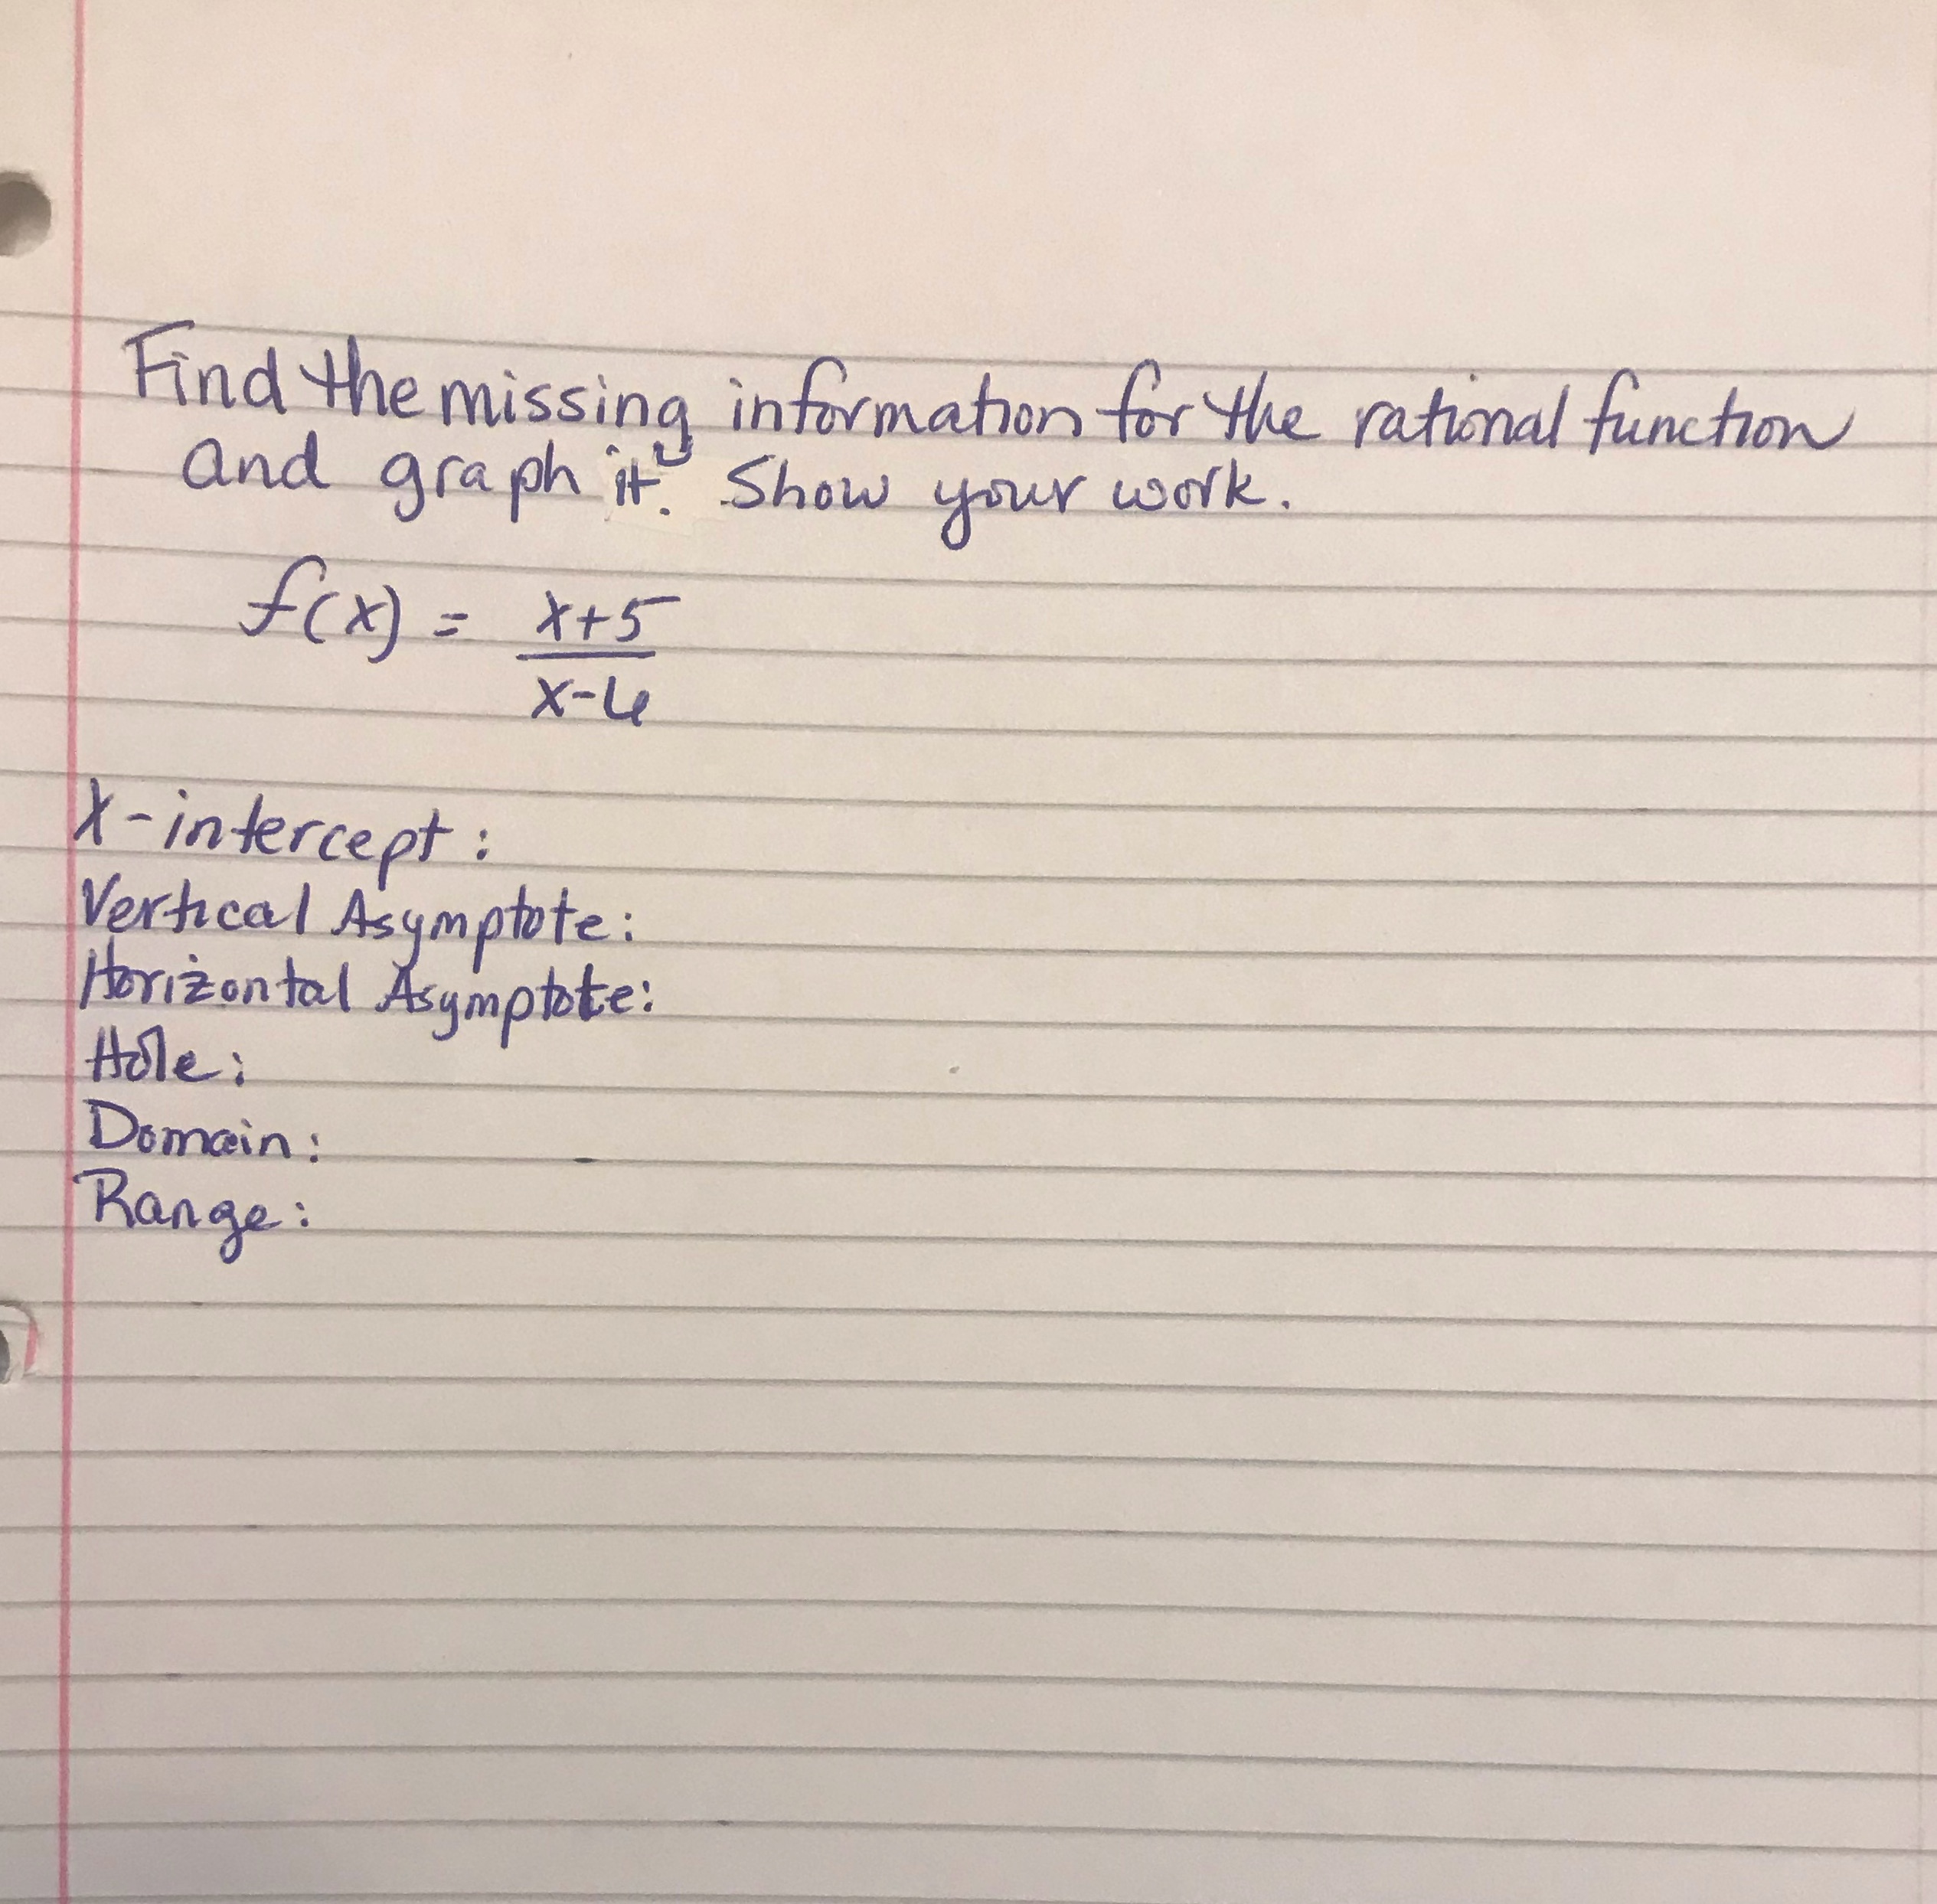 Find the missing information for the rational function
and graph it. Show your work.
f(x) = x+5
x-6
X-intercept:
Vertical Asymptote:
Horizontal Asymptote:
Hole:
Domain:
Range: